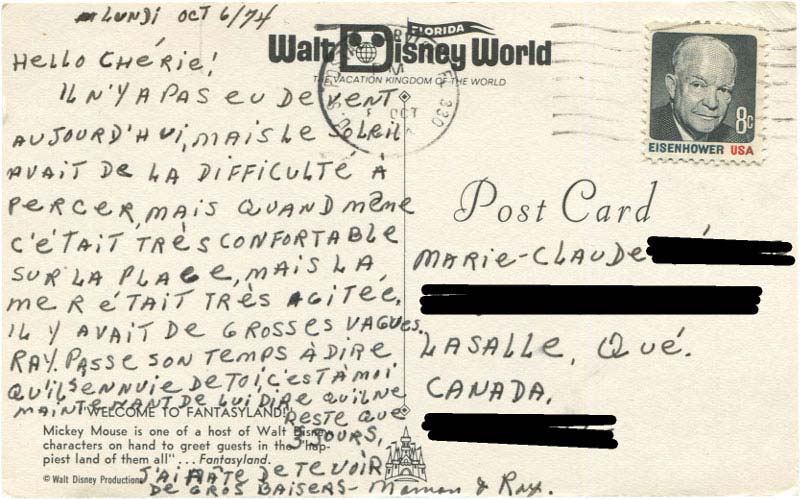 Lundi OCT 6/74
HELLO CHÉRIE!
IL N'Y A PAS EU DE VENT
AUJOURD'HUI, MAIS LE SOLEIL
AVAIT DE LA DIFFICULTÉ À
PERCER, MAIS QUAND MÊME
C'ÉTAIT TRÈS CONFORTABLE
SUR LA PLAGE, MAIS LA
MER ÉTAIT TRÈS AGITÉE,
IL Y AVAIT DE GROSSES VAGUES.
RAY. PASSE SON TEMPS À DIRE
QU'IL S'ENNUIE DE TOI, C'EST À MOI
MAINTENANT DE LUI DIRE QU'IL NE
RESTE QUE
3 JOURS,
J'AI HÂTE DE TE VOIR
DE GROS BAISERS - Maman & Ray.
"WELCOME TO FANTASYLAND!"
Mickey Mouse is one of a host of Walt Disney
characters on hand to greet guests in the "hap-
piest land of them all" ... Fantasyland.
© Walt Disney Productions
FLORIDA
Walt Disney World
THE VACATION KINGDOM OF THE WORLD
PM
OCT
8c
EISENHOWER USA
Post Card
MARIE-CLAUDE
LASALLE, QUÉ.
CANADA.